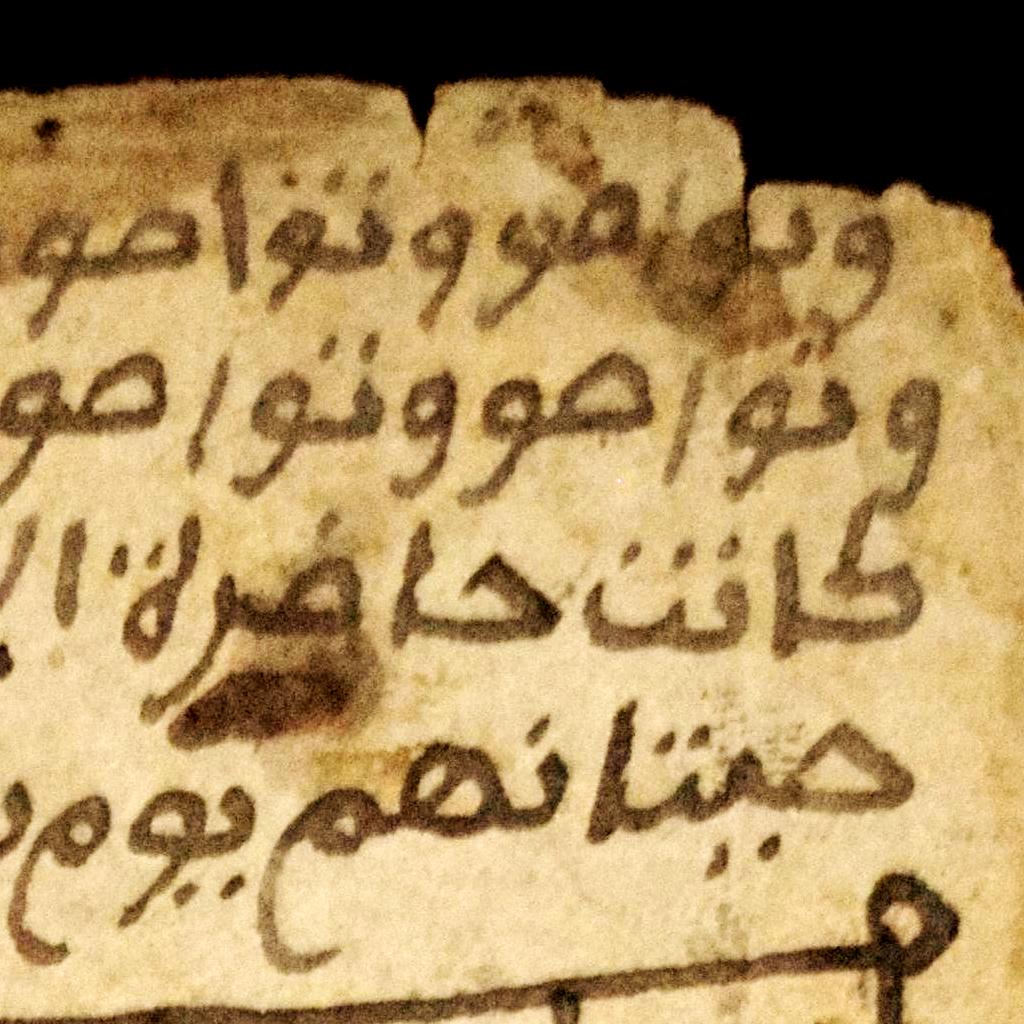 وتوا صو وتوا صو
وتوا صو وتوا صو
كانت حاضرة ا
حيتانهم يوم